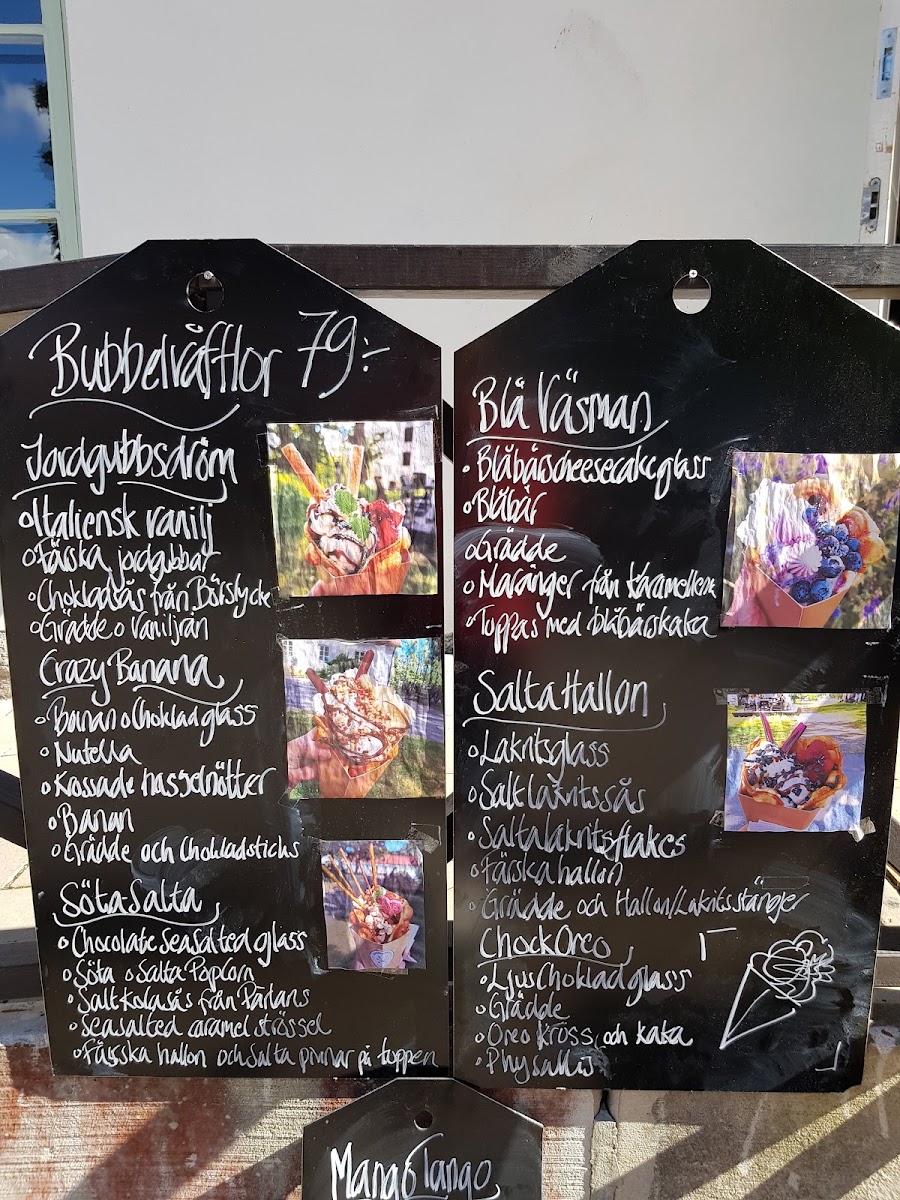 Bubbelvåfflor 79:-
Jordgubbsdröm
Italiensk vanilj
Färska jordgubbar
Chokladsås från Börslycke
Grädde o vaniljrån
Crazy Banana
Banan o Chokladglass
Nutella
Krossade hasselnötter
Banan
Grädde och Chokladsticks
Söta Salta
Chocolate Seasalted glass
Söta o Salta Popcorn
Salt kolasås från Pärlans
Seasalted caramel strössel
Färska hallon och Salta pinnar på toppen
Blå Väsman
Blåbärscheesecakeglass
Blåbär
Grädde
Maränger från Karamelleriet
Toppas med blåbärskaka
Salta Hallon
Lakritsglass
Salt lakritssås
Salta lakritsflakes
Färska hallon
Grädde och Hallon/Lakritsstänger
ChockOreo
Ljus Chokladglass
Grädde
Oreo kross och kaka
Physallis
Mango Tango